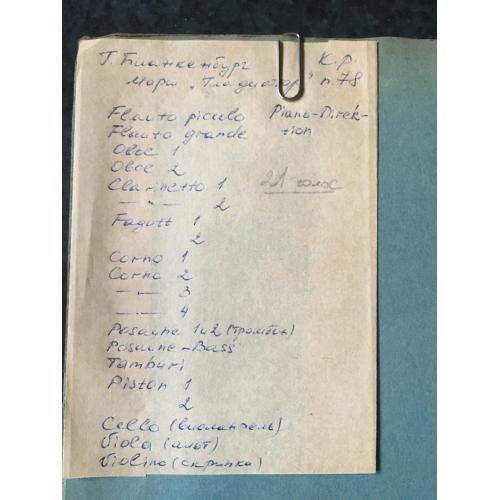 Г. Бланкенбург К.р.
Марш "Гладиатор" п. 78
Flauto piccolo Piano-Direk-
Flauto grande tion
Oboe 1
Oboe 2
Clarinetto 1 21 голос
—"— 2
Fagott 1
2
Corno 1
Corno 2
—"— 3
—"— 4
Posaune 1 и 2 (тромбон)
Posaune-Bass
Tamburi
Piston 1
2
Cello (виолончель)
Viola (альт)
Violino (скрипка)